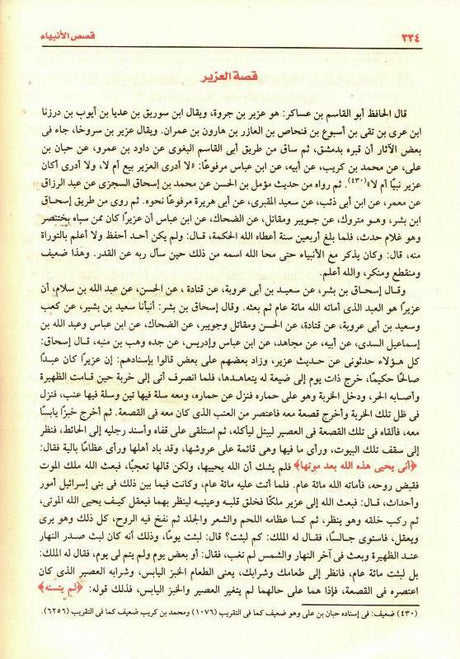 ٣٣٤
قصص الأنبياء
قصة العزير
قال الحافظ أبو القاسم بن عساكر: هو عزير بن جروة، ويقال ابن سوريق بن عديا بن أيوب بن درزنا
ابن عرى بن تقى بن أسبوع بن فنحاص بن العازر بن هارون بن عمران. ويقال عزير بن سروخا، جاء فى
بعض الآثار أن قبره بدمشق، ثم ساق من طريق أبى القاسم البغوى عن داود بن عمرو، عن حبان بن
على، عن محمد بن كريب، عن أبيه، عن ابن عباس مرفوعًا: «لا أدرى العزير بيع أم لا، ولا أدرى أكان
عزير نبيًا أم لا»(٤٣٠). ثم رواه من حديث مؤمل بن الحسن عن محمد بن إسحاق السجزى عن عبد الرزاق
عن معمر، عن ابن أبى ذئب، عن سعيد المقبرى، عن أبى هريرة مرفوعًا نحوه. ثم روى من طريق إسحاق
ابن بشر، وهو متروك، عن جويبر ومقاتل، عن الضحاك، عن ابن عباس أن عزيرًا كان ممن سباه بختنصر
وهو غلام حدث، فلما بلغ أربعين سنة أعطاه الله الحكمة، قال: ولم يكن أحد أحفظ ولا أعلم بالتوراة
منه، قال: وكان يذكر مع الأنبياء حتى محا الله اسمه من ذلك حين سأل ربه عن القدر. وهذا ضعيف
ومنقطع ومنكر، والله أعلم.
وقال إسحاق بن بشر، عن سعيد بن أبى عروبة، عن قتادة ، عن الحسن، عن عبد الله بن سلام، أن
عزيرًا هو العبد الذى أماته الله مائة عام ثم بعثه. وقال إسحاق بن بشر: أنبأنا سعيد بن بشير، عن كعب
وسعيد بن أبى عروبة، عن قتادة، عن الحسن ومقاتل وجويبر، عن الضحاك، عن ابن عباس وعبد الله بن
إسماعيل السدى، عن أبيه، عن مجاهد، عن ابن عباس وإدريس، عن جده وهب بن منبه، قال إسحاق:
كل هؤلاء حدثونى عن حديث عزير، وزاد بعضهم على بعض قالوا بإسنادهم: إن عزيرًا كان عبدًا
صالحًا حكيمًا، خرج ذات يوم إلى ضيعة له يتعاهدها، فلما انصرف أتى إلى خربة حين قامت الظهيرة
وأصابه الحر، ودخل الخربة وهو على حماره فنزل عن حماره، ومعه سلة فيها تين وسلة فيها عنب، فنزل
فى ظل تلك الخربة وأخرج قصعة معه فاعتصر من العنب الذى كان معه فى القصعة. ثم أخرج خبزًا يابسًا
معه، فألقاه فى تلك القصعة فى العصير ليبتل ليأكله، ثم استلقى على قفاه وأسند رجليه إلى الحائط، فنظر
إلى سقف تلك البيوت، ورأى ما فيها وهى قائمة على عروشها، وقد باد أهلها ورأى عظامًا بالية فقال:
﴿أنى يحيى هذه الله بعد موتها﴾ فلم يشك أن الله يحييها، ولكن قالها تعجبًا، فبعث الله ملك الموت
فقبض روحه، فأماته الله مائة عام. فلما أتت عليه مائة عام، وكانت فيما بين ذلك فى بنى إسرائيل أمور
وأحداث، قال: فبعث الله إلى عزير ملكًا فخلق قلبه وعينيه لينظر بهما فيعقل كيف يحيى الله الموتى،
ثم ركب خلقه وهو ينظر، ثم كسا عظامه اللحم والشعر والجلد ثم نفخ فيه الروح، كل ذلك وهو يرى
ويعقل، فاستوى جالسًا، فقال له الملك: كم لبثت؟ قال: لبثت يومًا، وذلك أنه كان لبث صدر النهار
عند الظهيرة وبعث فى آخر النهار والشمس لم تغب، فقال: أو بعض يوم ولم يتم لى يوم، فقال له الملك:
بل لبثت مائة عام، فانظر إلى طعامك وشرابك، يعنى الطعام الخبز اليابس، وشرابه العصير الذى كان
اعتصره فى القصعة، فإذا هما على حالهما لم يتغير العصير والخبز اليابس، فذلك قوله: ﴿لم يتسنه﴾
(٤٣٠) ضعيف: فى إسناده حبان بن على وهو ضعيف كما فى التقريب (١٠٧٦) ومحمد بن كريب ضعيف كما فى التقريب (٦٢٥٦).